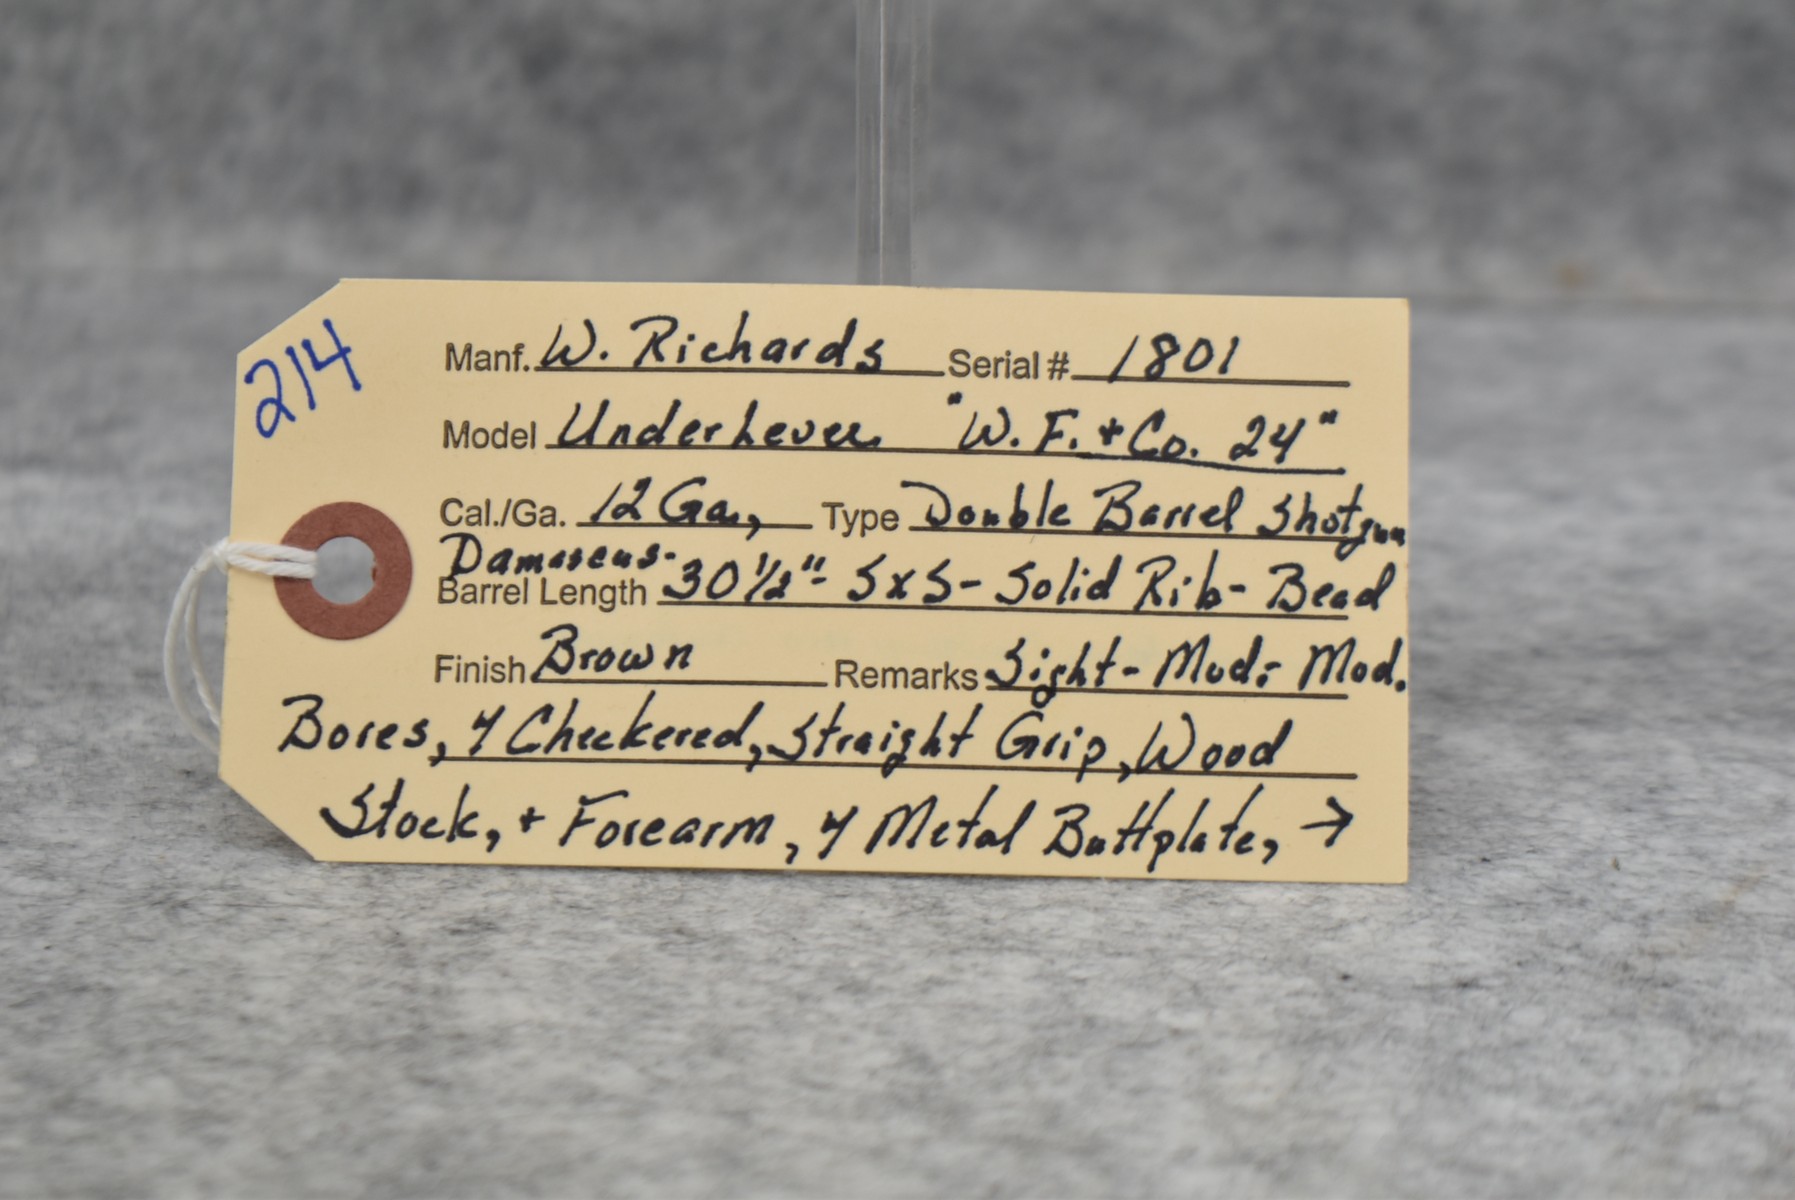 214
Manf. W. Richards Serial # 1801
Model Underlever "W. F. + Co. 24"
Cal./Ga. 12 Ga, Type Double Barrel Shotgun
Damascus-
Barrel Length 30 1/2"- SxS- Solid Rib- Bead
Finish Brown Remarks Sight- Mod.- Mod.
Bores, y Checkered, Straight Grip, Wood
Stock, + Forearm, y Metal Buttplate, →